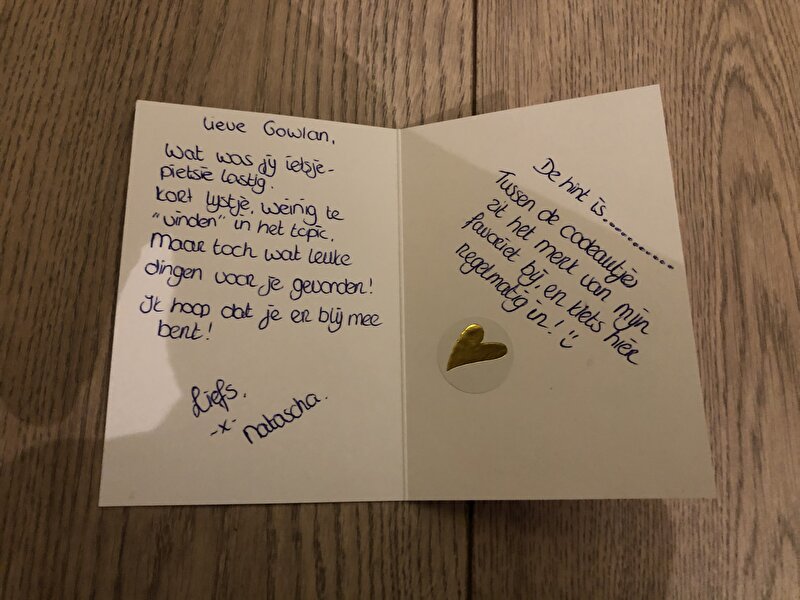 Lieve Gowlan,
Wat was jij ietsje-
pietsie lastig.
Kort lijstje, weinig te
"vinden" in het topic.
Maar toch wat leuke
dingen voor je gevonden!
Ik hoop dat je er blij mee
bent!
Liefs.
-x- Natascha.
De hint is...........
Tussen de cadeautjes
zit het merk van mijn
favoriet bij, en klets hier
regelmatig in! :)